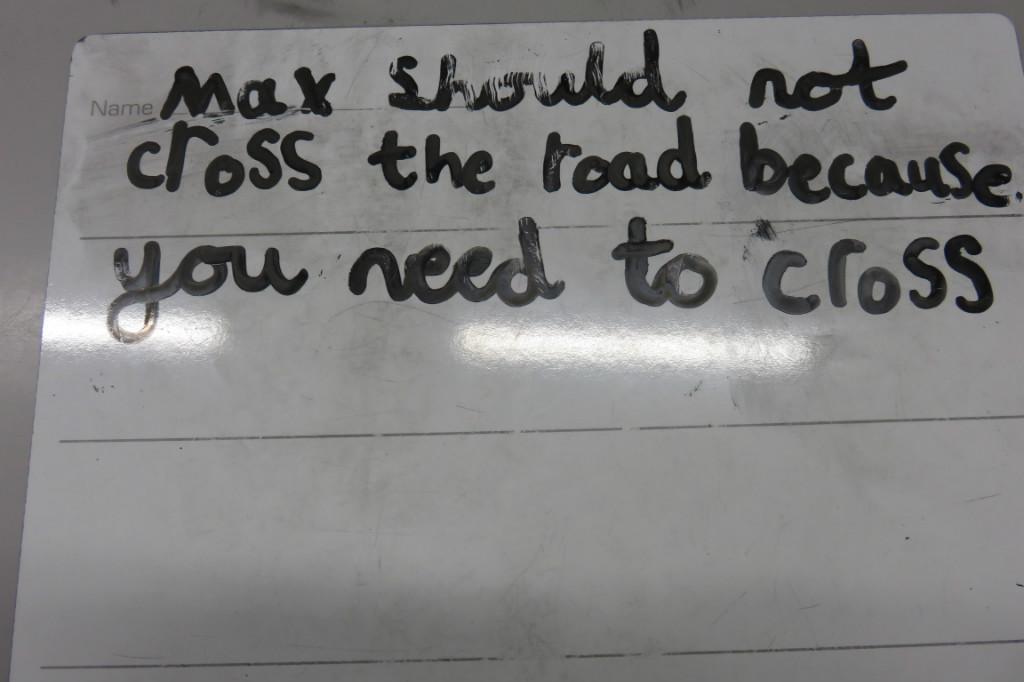 Name Max should not
cross the road because.
you need to cross